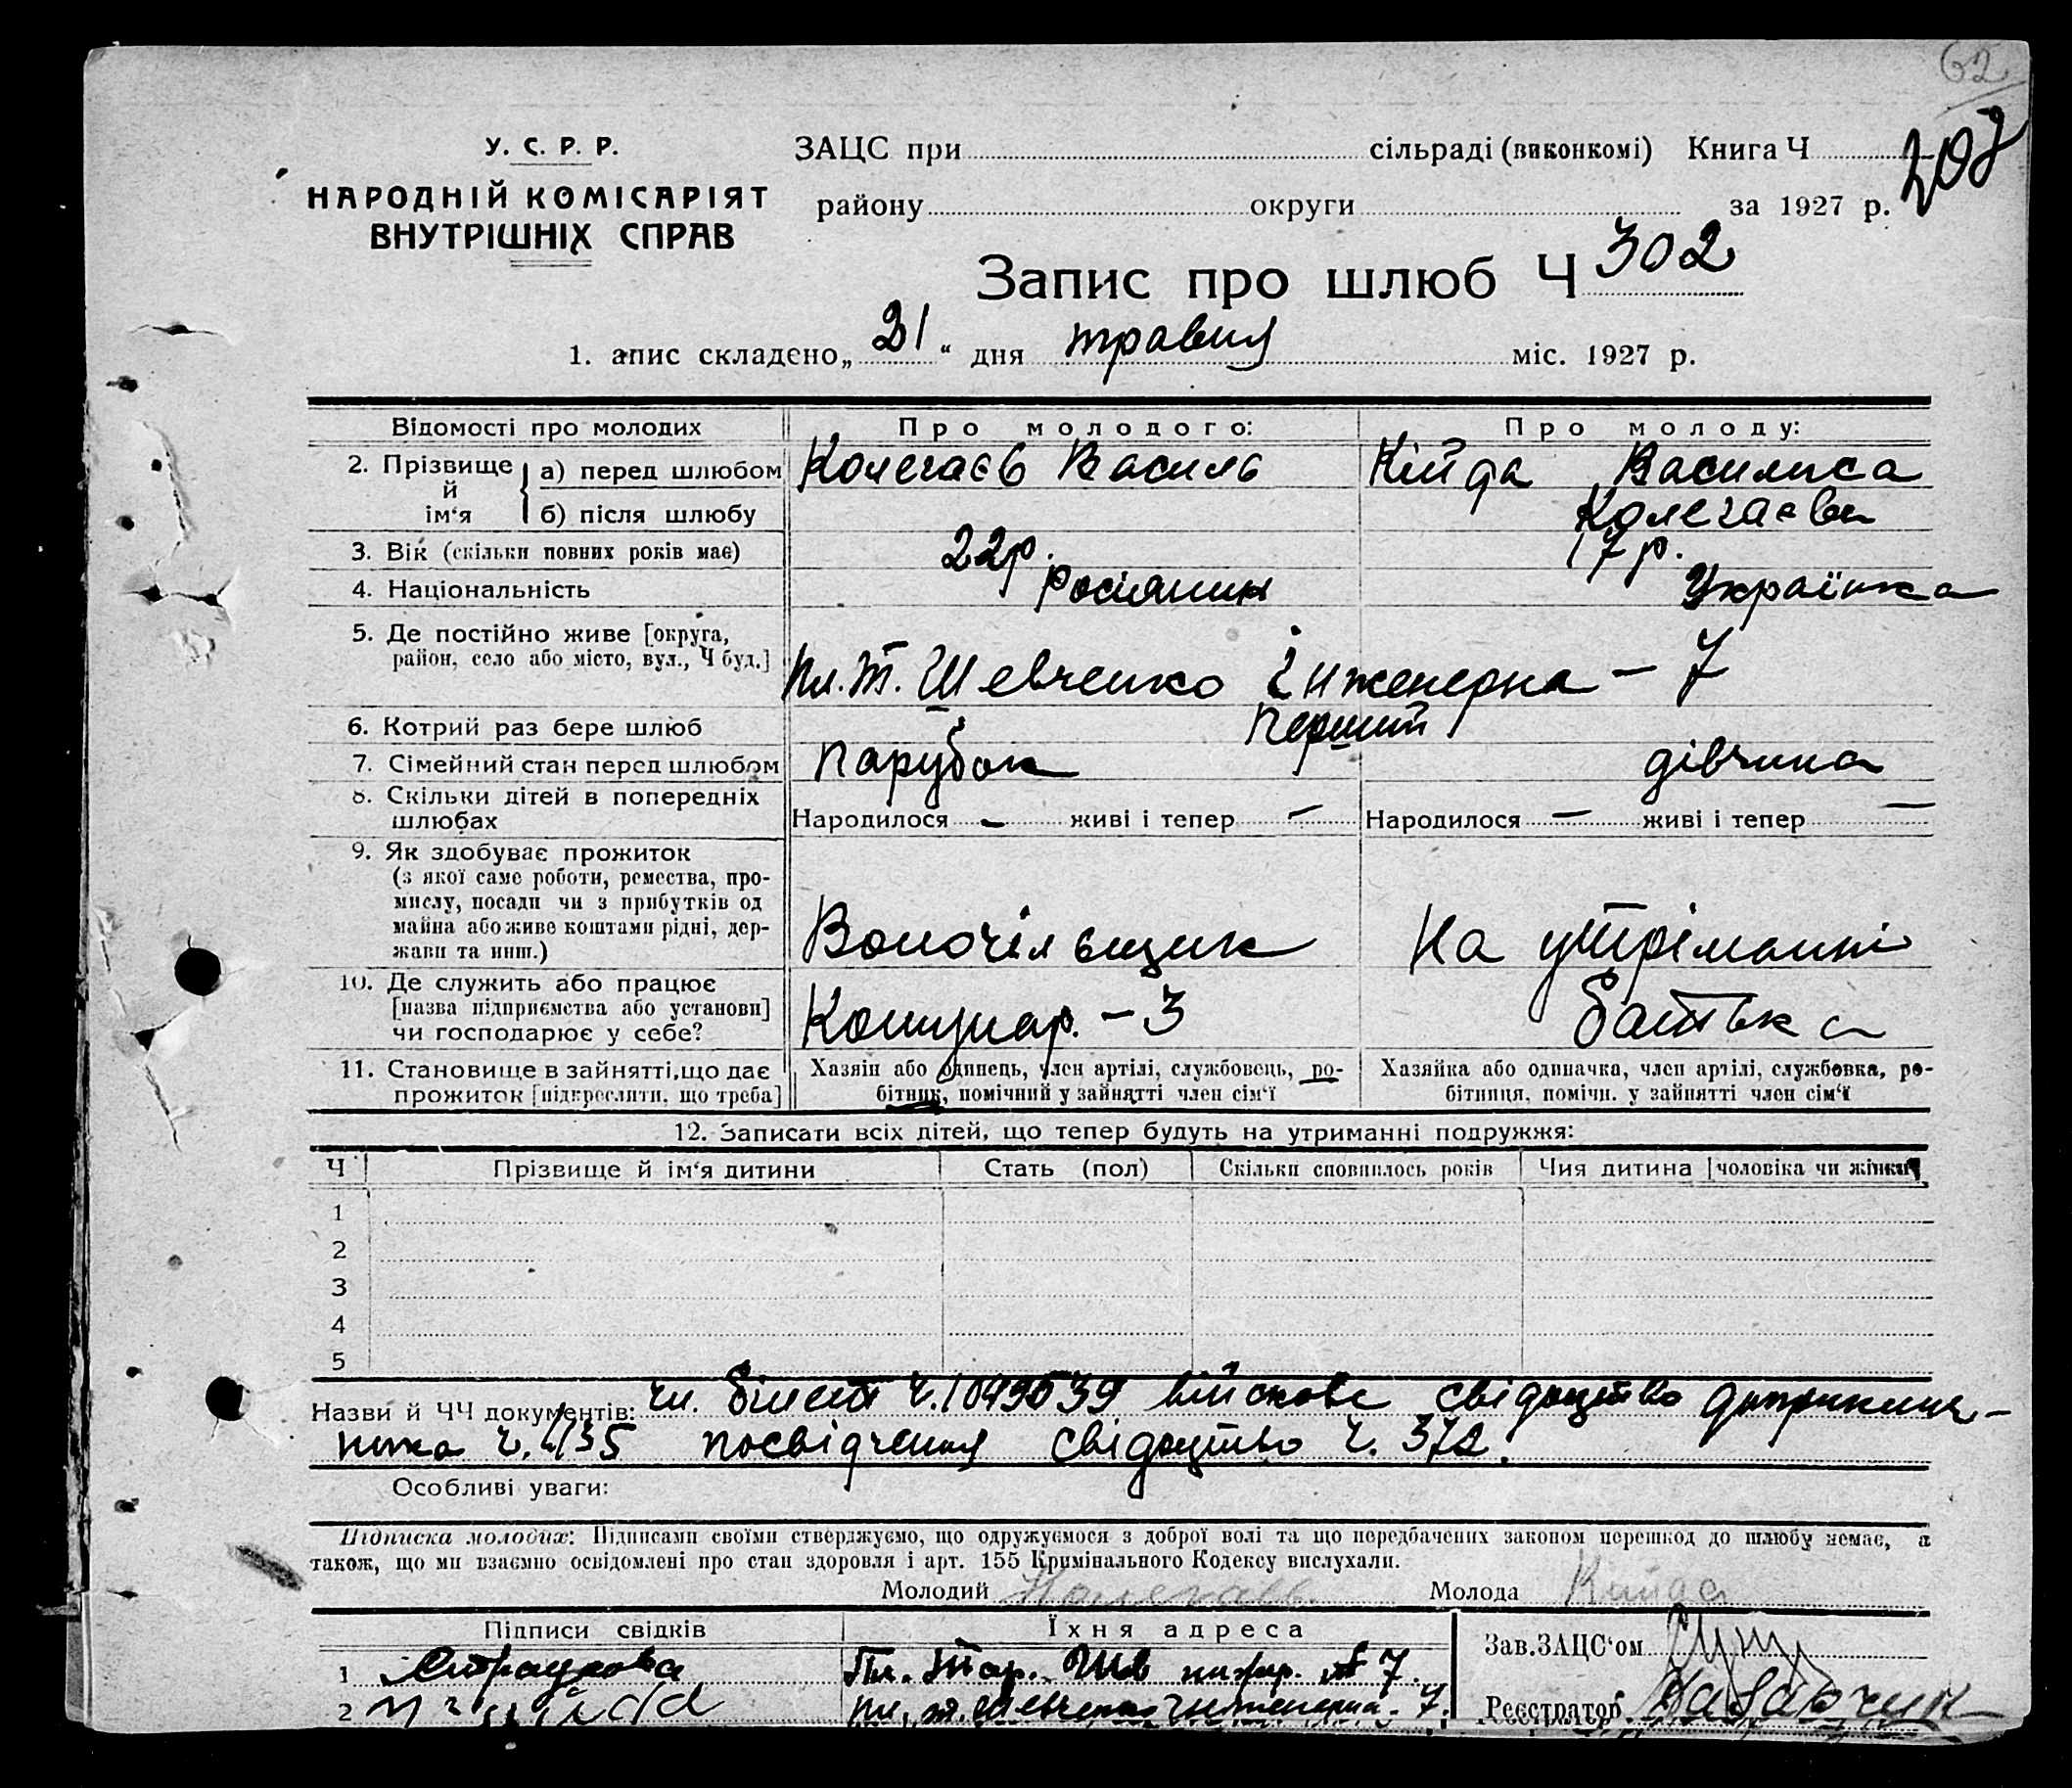 62
207
У. С. Р. Р.
НАРОДНІЙ КОМІСАРІЯТ
ВНУТРІШНІХ СПРАВ
ЗАЦС при сільраді (виконкомі) Книга Ч
району округи за 1927 р.
Запис про шлюб Ч 302
1. апис складено „21“ дня травня міс. 1927 р.
Відомості про молодих Про молодого: Про молоду:
2. Прізвище й ім‘я а) перед шлюбом Колегаєв Василь Кійда Василиса
б) після шлюбу Колегаєва
3. Вік (скільки повних років має) 22р. 17р.
4. Національність росіянин Українка
5. Де постійно живе [округа,
район, село або місто, вул., Ч буд.] Пл. Т. Шевченко Інженерна – 7
6. Котрий раз бере шлюб Перший
7. Сімейний стан перед шлюбом парубок дівчина
8. Скільки дітей в попередніх
шлюбах Народилося – живі і тепер – Народилося – живі і тепер –
9. Як здобуває прожиток
(з якої саме роботи, ремества, про-
мислу, посади чи з прибутків од
майна або живе коштами рідні, дер-
жави та инш.) На утріманні
10. Де служить або працює
[назва підприємства або установи] батька
чи господарює у себе? Комунар. – 3
11. Становище в зайнятті, що дає Хазяін або одинець, член артілі, службовець, ро- Хазяйка або одиначка, член артілі, службовка, ро-
прожиток [підкреслити, що треба] бітник, помічний у зайнятті член сім‘ї бітниця, помічн. у зайнятті член сім‘ї
12. Записати всіх дітей, що тепер будуть на утриманні подружжя:
Ч Прізвище й ім‘я дитини Стать (пол) Скільки сповнилось років Чия дитина [чоловіка чи жінки]
1
2
3
4
5
Назви й ЧЧ документів: чл. білет ч. 1049539 військове свідоцтво
ника ч. посвідчення свідоцтво ч. 372.
Особливі уваги:
Підписка молодих: Підписами своїми стверджуємо, що одружуємося з доброї волі та що передбачених законом перешкод до шлюбу немає, а
також, що ми взаємно освідомлені про стан здоровля і арт. 155 Кримінального Кодексу вислухали.
Молодий Колегаев. Молода Кийда
Підписи свідків Їхня адреса Зав. ЗАЦС‘ом
1 Пл. Тар. Шев инжер. № 7.
2 Пл. т. Шевченко Інженерна. 7. Реєстратор